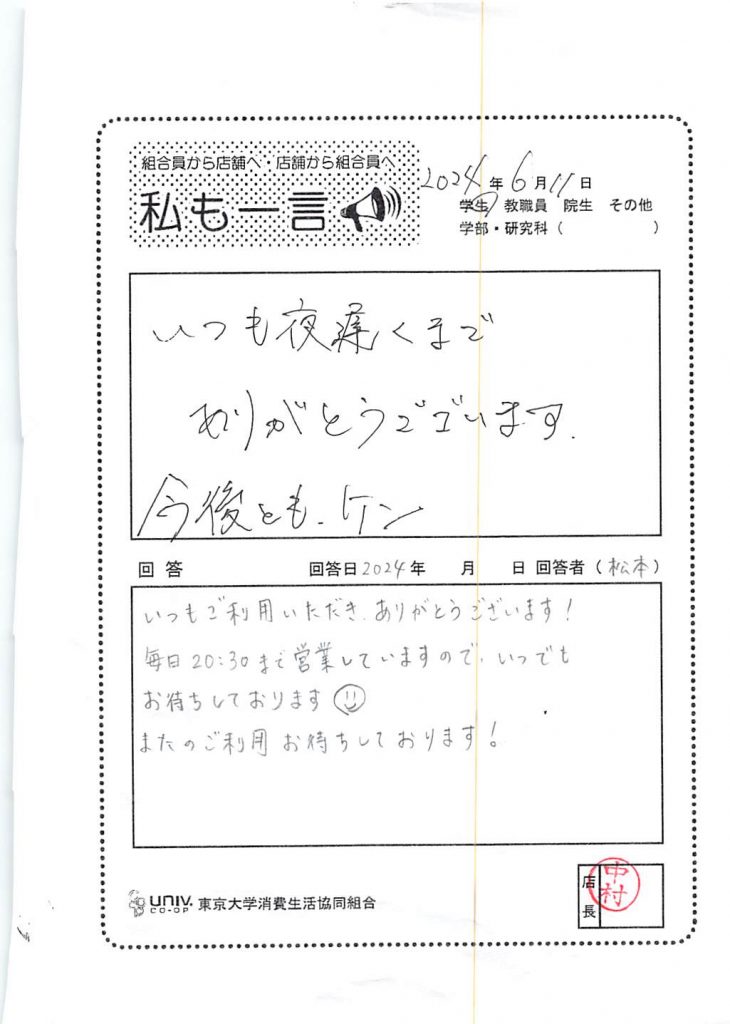 組合員から店舗へ・店舗から組合員へ
私も一言
2024年6月11日
学生 教職員 院生 その他
学部・研究科（ ）
いつも夜遅くまで
ありがとうございます.
今後とも、
回答 回答日2024年 月 日 回答者（松本）
いつもご利用いただき、ありがとうございます！
毎日20:30まで営業していますので、いつでも
お待ちしております
またのご利用お待ちしております！
UNIV.
CO-OP 東京大学消費生活協同組合
店長
中村